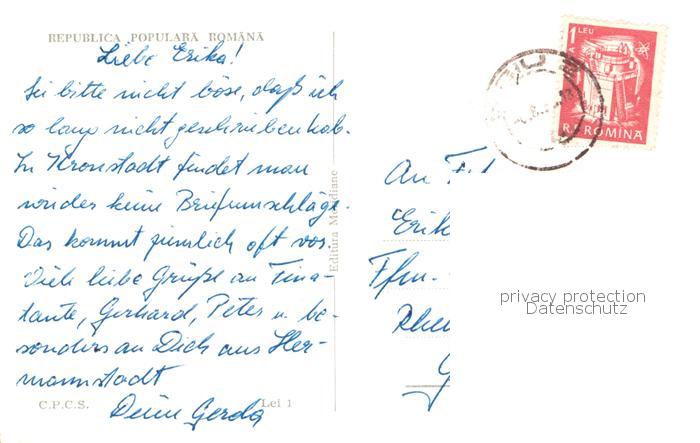 REPUBLICA POPULARĂ ROMÂNĂ
Liebe Erika!
Sei bitte nicht böse, daß ich
so lang nicht geschrieben hab.
In Kronstadt findet man
wieder keine Briefumschläge.
Das kommt ziemlich oft vor.
Viele liebe Grüße an Tina-
tante, Gerhard, Peter u. be-
sonders an Dich aus Her-
mannstadt
Deine Gerda
C.P.C.S.
Lei 1
Editura Meridiane
1 LEU
R.P. ROMÎNA
An
Erik
Ffm.
privacy protection
Datenschutz